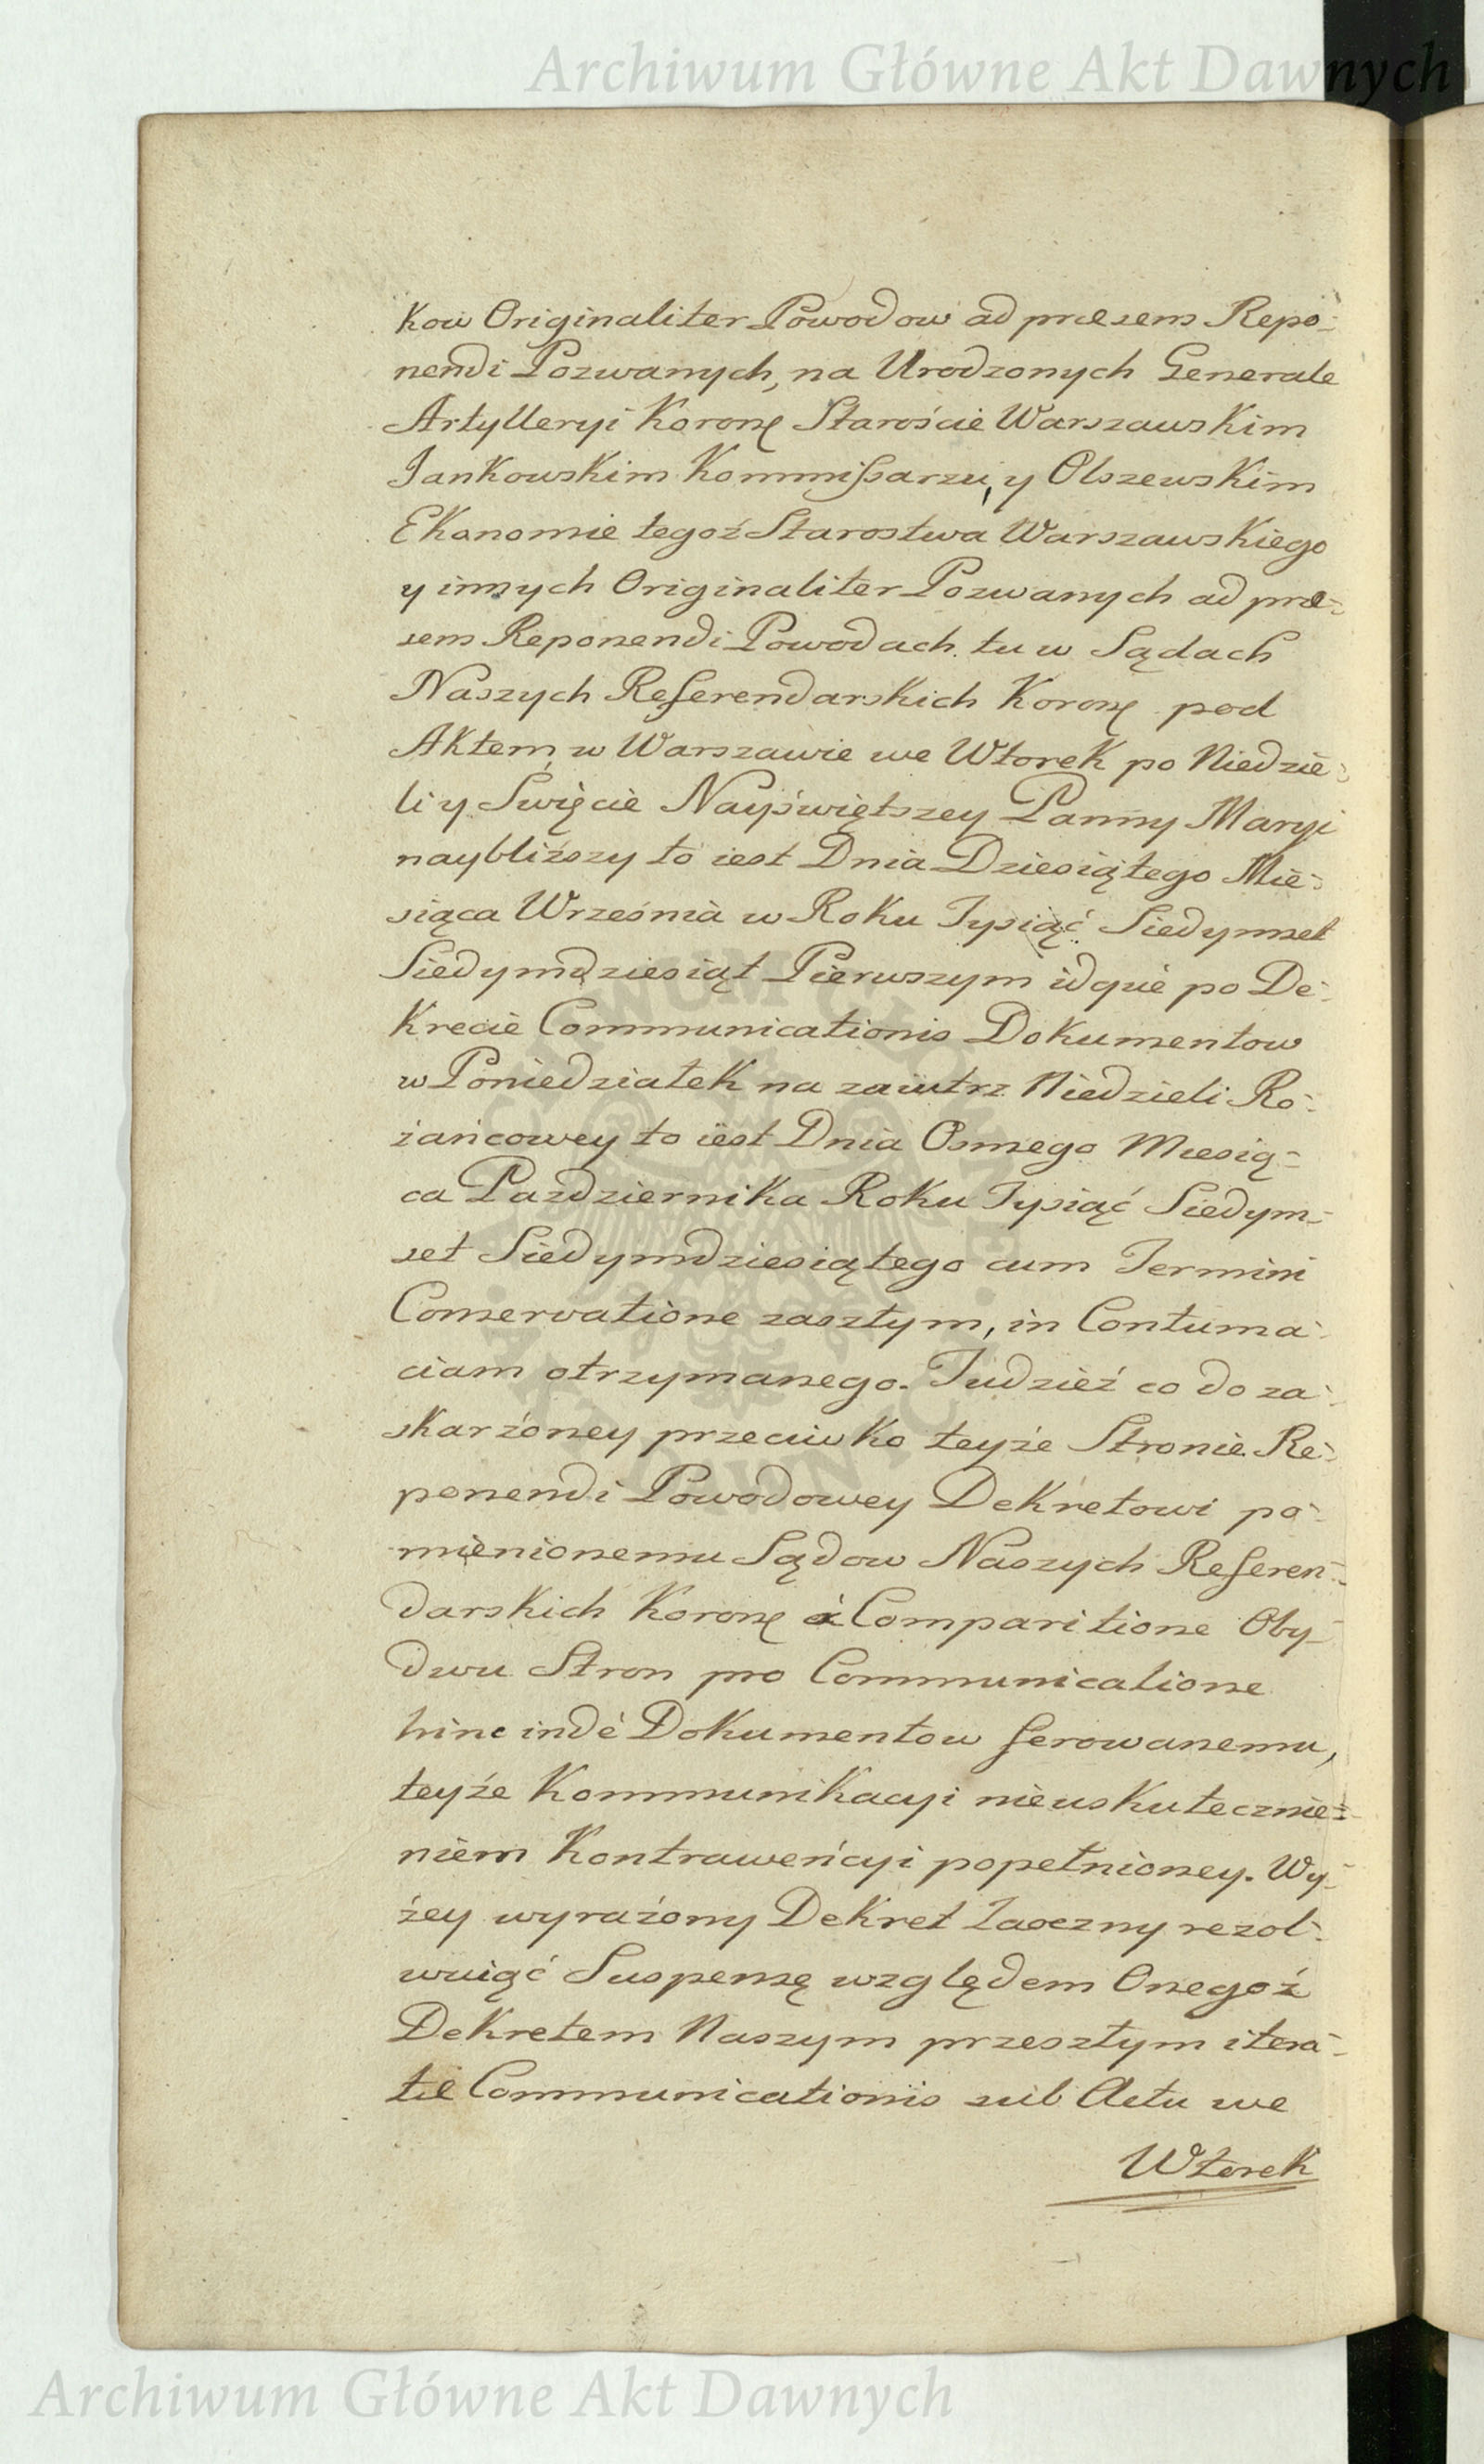 Archiwum Główne Akt Dawnych
kow Originaliter Powodow ad præsens Repo-
nendi Pozwanych, na Urodzonych Generale
Artylleryi Koronę Staroście Warszawskim
Jankowskim Kommissarzu, y Olszewskim
Ekonomie tegoż Starostwa Warszawskiego
y innych Originaliter Pozwanych ad præ-
sens Reponendi Powodach tu w Sądach
Naszych Referendarskich Koronę pod
Aktem w Warszawie we Wtorek po Niedzie-
li y Swięcie Nayświętszey Panny Maryi
naybliższy to iest Dnia Dziesiątego Mie-
siąca Września w Roku Tysiąć Siedymset
Siedymdziesiąt Pierwszym idque po De-
krecie Communicationis Dokumentow
w Poniedziałek na zaiutrz Niedzieli Ro-
żańcowey to iest Dnia Osmego Miesią-
ca Pazdziernika Roku Tysiąć Siedym-
set Siedymdziesiątego cum Termini
Conservatione zaszłym, in Contuma-
ciam otrzymanego. Tudzież co do za-
skarżoney przeciwko teyże Stronie Re-
ponendi Powodowey Dekretowi po-
mienionemu Sądow Naszych Referen-
darskich Koronę à Comparitione Oby-
dwu Stron pro Communicatione
hinc indè Dokumentow ferowanemu,
teyże Kommunikacyi nieuskutecznie-
niem Kontraweńcyi popełnioney. Wy-
żey wyrażony Dekret Zaoczny rezol-
wuiąć Suspensę względem Onegoż
Dekretem Naszym przeszłym itera-
tæ Communicationis sub Actu we
Wtorek
Archiwum Główne Akt Dawnych